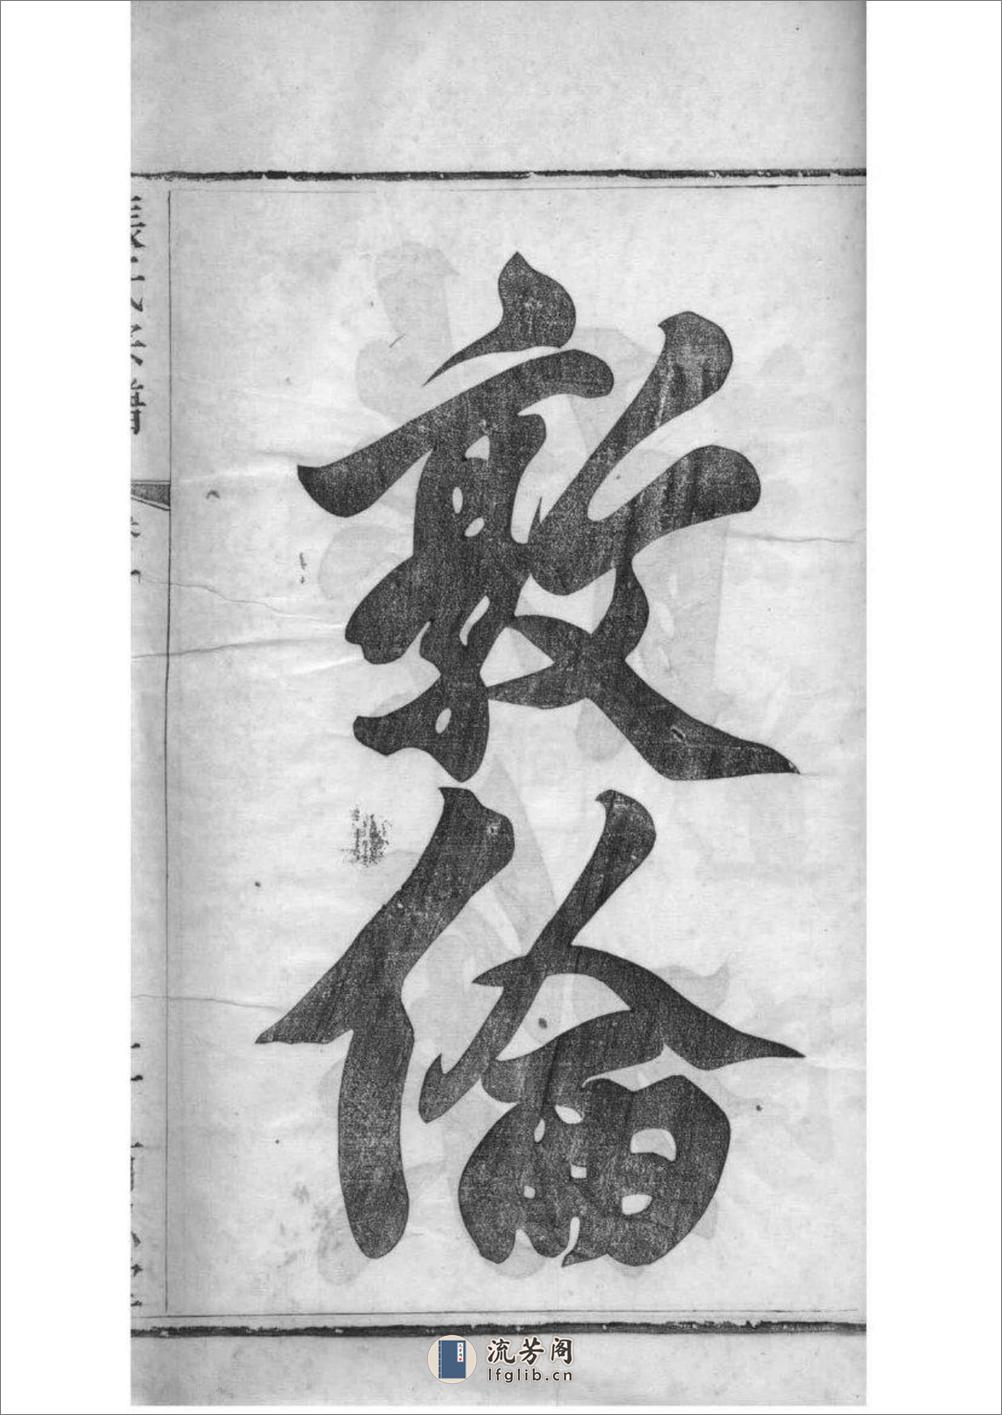 敦
倫
流芳阁
lfglib.cn